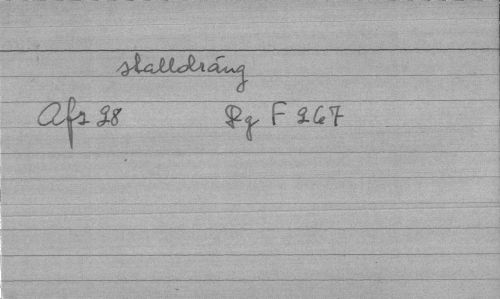 stalldräng
Afz 28 Rg F 267